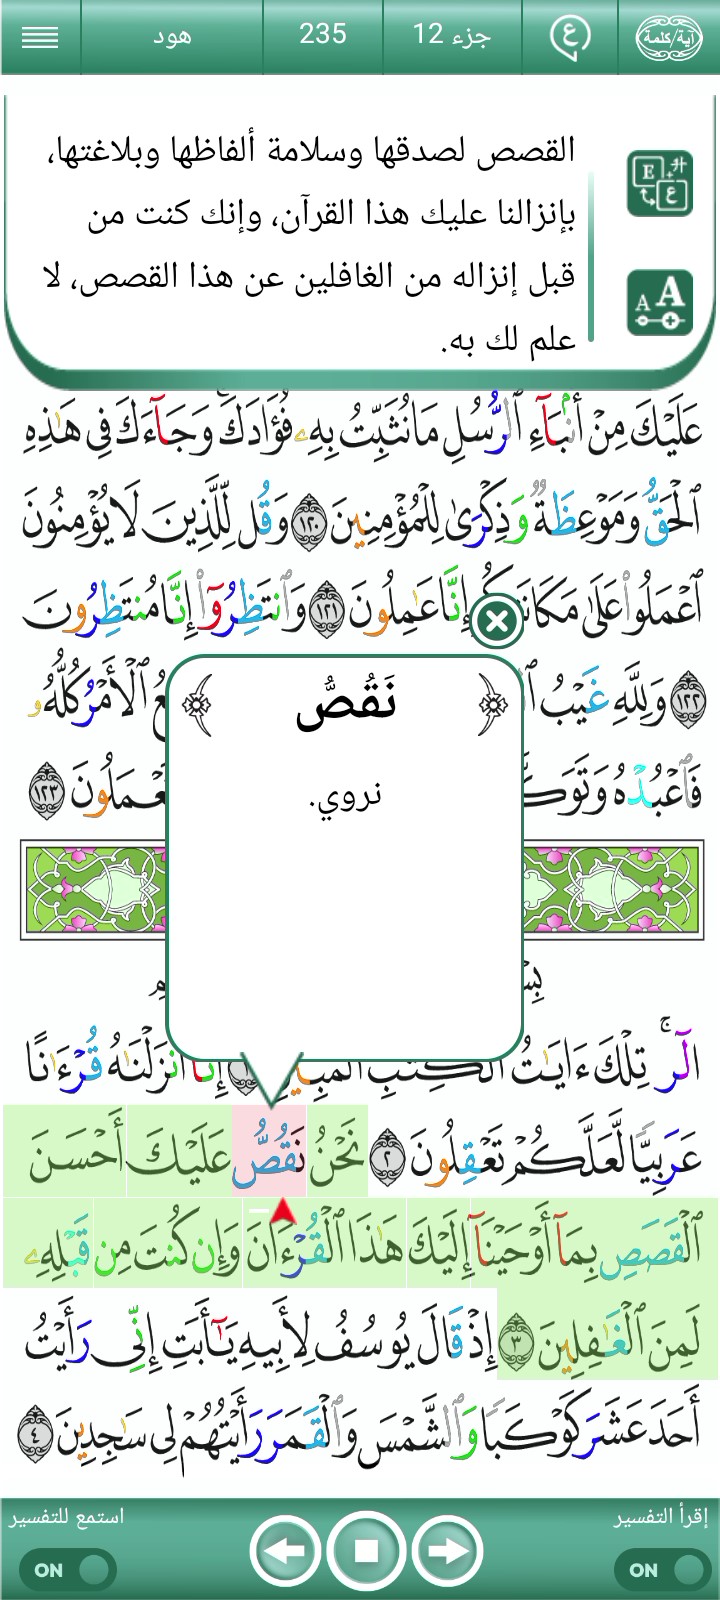 آية/كلمة
ع
جزء 12
235
هود
القصص لصدقها وسلامة ألفاظها وبلاغتها،
بإنزالنا عليك هذا القرآن، وإنك كنت من
قبل إنزاله من الغافلين عن هذا القصص، لا
علم لك به.
عَلَيْكَ مِنْ أَنۢبَآءِ ٱلرُّسُلِ مَا نُثَبِّتُ بِهِۦ فُؤَادَكَۚ وَجَآءَكَ فِى هَـٰذِهِ
ٱلْحَقُّ وَمَوْعِظَةٌ وَذِكْرَىٰ لِلْمُؤْمِنِينَ ١٢٠ وَقُل لِّلَّذِينَ لَا يُؤْمِنُونَ
ٱعْمَلُوا۟ عَلَىٰ إِنَّا عَـٰمِلُونَ ١٢١ وَٱنتَظِرُوٓا۟ إِنَّا مُنتَظِرُونَ
١٢٢ وَلِلَّهِ غَيْبُ ٱلْأَمْرُ كُلُّهُۥ
فَٱعْبُدْهُ ١٢٣
نَقُصُّ
نروي.
الٓرۚ تِلْكَ ءَايَـٰتُ ٱلْكِتَـٰبِ ٱلْمُبِينِ إِنَّآ أَنزَلْنَـٰهُ قُرْءَٰنًا
عَرَبِيًّا لَّعَلَّكُمْ تَعْقِلُونَ ٢ نَحْنُ نَقُصُّ عَلَيْكَ أَحْسَنَ
ٱلْقَصَصِ بِمَآ أَوْحَيْنَآ إِلَيْكَ هَـٰذَا ٱلْقُرْءَانَ وَإِن كُنتَ مِن قَبْلِهِۦ
لَمِنَ ٱلْغَـٰفِلِينَ ٣ إِذْ قَالَ يُوسُفُ لِأَبِيهِ يَـٰٓأَبَتِ إِنِّى رَأَيْتُ
أَحَدَ عَشَرَ كَوْكَبًا وَٱلشَّمْسَ وَٱلْقَمَرَ رَأَيْتُهُمْ لِى سَـٰجِدِينَ ٤
إقرأ التفسير
استمع للتفسير
ON
ON